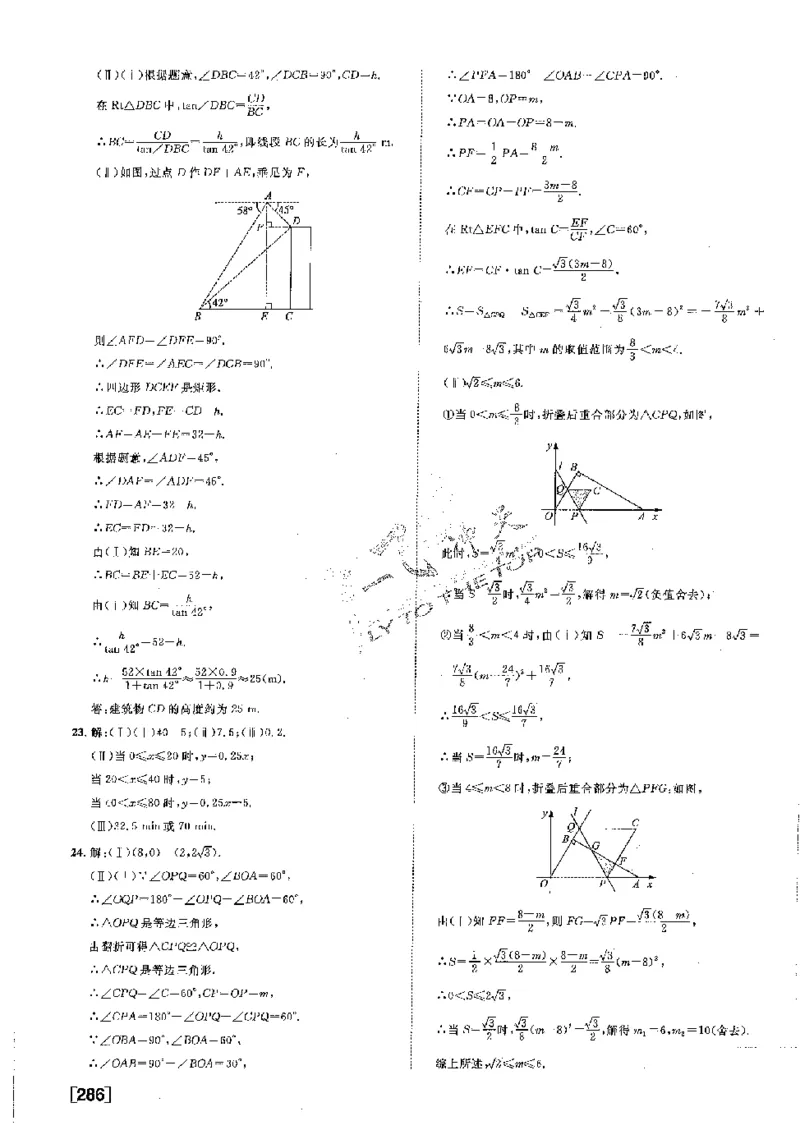 (Ⅱ)(ⅰ)根据题意,∠DBC=42°,∠DCB=90°,CD=h.
在 Rt△DBC 中,tan∠DBC=CD/BC,
∴BC=CD/tan∠DBC=h/tan 42°,即线段 BC 的长为 h/tan 42° m.
(ⅱ)如图,过点 D 作 DF⊥AE,垂足为 F,
A
58° 45°
F D
42°
B E C
则∠AFD=∠DFE=90°,
∴∠DFE=∠AEC=∠DCB=90°,
∴四边形 DCEF 是矩形.
∴EC=FD,FE=CD=h.
∴AF=AE-FE=32-h.
根据题意,∠ADF=45°,
∴∠DAF=∠ADF=45°.
∴FD=AF=32-h.
∴EC=FD=32-h.
由(Ⅰ)知 BE=20,
∴BC=BE+EC=52-h,
由(ⅰ)知 BC=h/tan 42°,
∴h/tan 42°=52-h.
∴h=52×tan 42°/1+tan 42°≈52×0.9/1+0.9≈25(m).
答:建筑物 CD 的高度约为 25 m.
23.解:(Ⅰ)(ⅰ)40 5;(ⅱ)7.5;(ⅲ)0.2.
(Ⅱ)当 0≤x≤20 时,y=0.25x;
当 20<x≤40 时,y=5;
当 40<x≤80 时,y=0.25x-5.
(Ⅲ)32.5 min 或 70 min.
24.解:(Ⅰ)(8,0) (2,2√3).
(Ⅱ)(ⅰ)∵∠OPQ=60°,∠BOA=60°,
∴∠OQP=180°-∠OPQ-∠BOA=60°,
∴△OPQ 是等边三角形,
由翻折可得△CPQ≌△OPQ,
∴△CPQ 是等边三角形.
∴∠CPQ=∠C=60°,CP=OP=m,
∴∠CPA=180°-∠OPQ-∠CPQ=60°.
∵∠OBA=90°,∠BOA=60°,
∴∠OAB=90°-∠BOA=30°,
[286]
∴∠PFA=180°-∠OAB-∠CPA=90°.
∵OA=8,OP=m,
∴PA=OA-OP=8-m.
∴PF=1/2 PA=8-m/2.
∴CF=CP-PF=3m-8/2.
在 Rt△EFC 中,tan C=EF/CF,∠C=60°,
∴EF=CF·tan C=√3(3m-8)/2,
∴S=S△CPQ-S△CEF=√3/4 m²-√3/8(3m-8)²=-7√3/8 m²+
6√3m-8√3,其中 m 的取值范围为 8/3<m<4.
(ⅱ)√2≤m≤6.
①当 0<m≤8/3 时,折叠后重合部分为△CPQ,如图,
y
l B
Q C
O P A x
此时,S=√3/4 m²,0<S≤16√3/9,
∴当 S=√3/2 时,√3/4 m²=√3/2,解得 m=√2(负值舍去);
②当 8/3<m<4 时,由(ⅰ)知 S=-7√3/8 m²+6√3m-8√3=
-7√3/8(m-24/7)²+16√3/7,
∴16√3/9<S≤16√3/7,
∴当 S=16√3/7 时,m=24/7;
③当 4≤m<8 时,折叠后重合部分为△PFG,如图,
y l
Q C
B G
F
O P A x
由(ⅰ)知 PF=8-m/2,则 FG=√3PF=√3(8-m)/2,
∴S=1/2×√3(8-m)/2×8-m/2=√3/8(m-8)²,
∴0<S≤2√3,
∴当 S=√3/2 时,√3/8(m-8)²=√3/2,解得 m₁=6,m₂=10(舍去).
综上所述,√2≤m≤6.